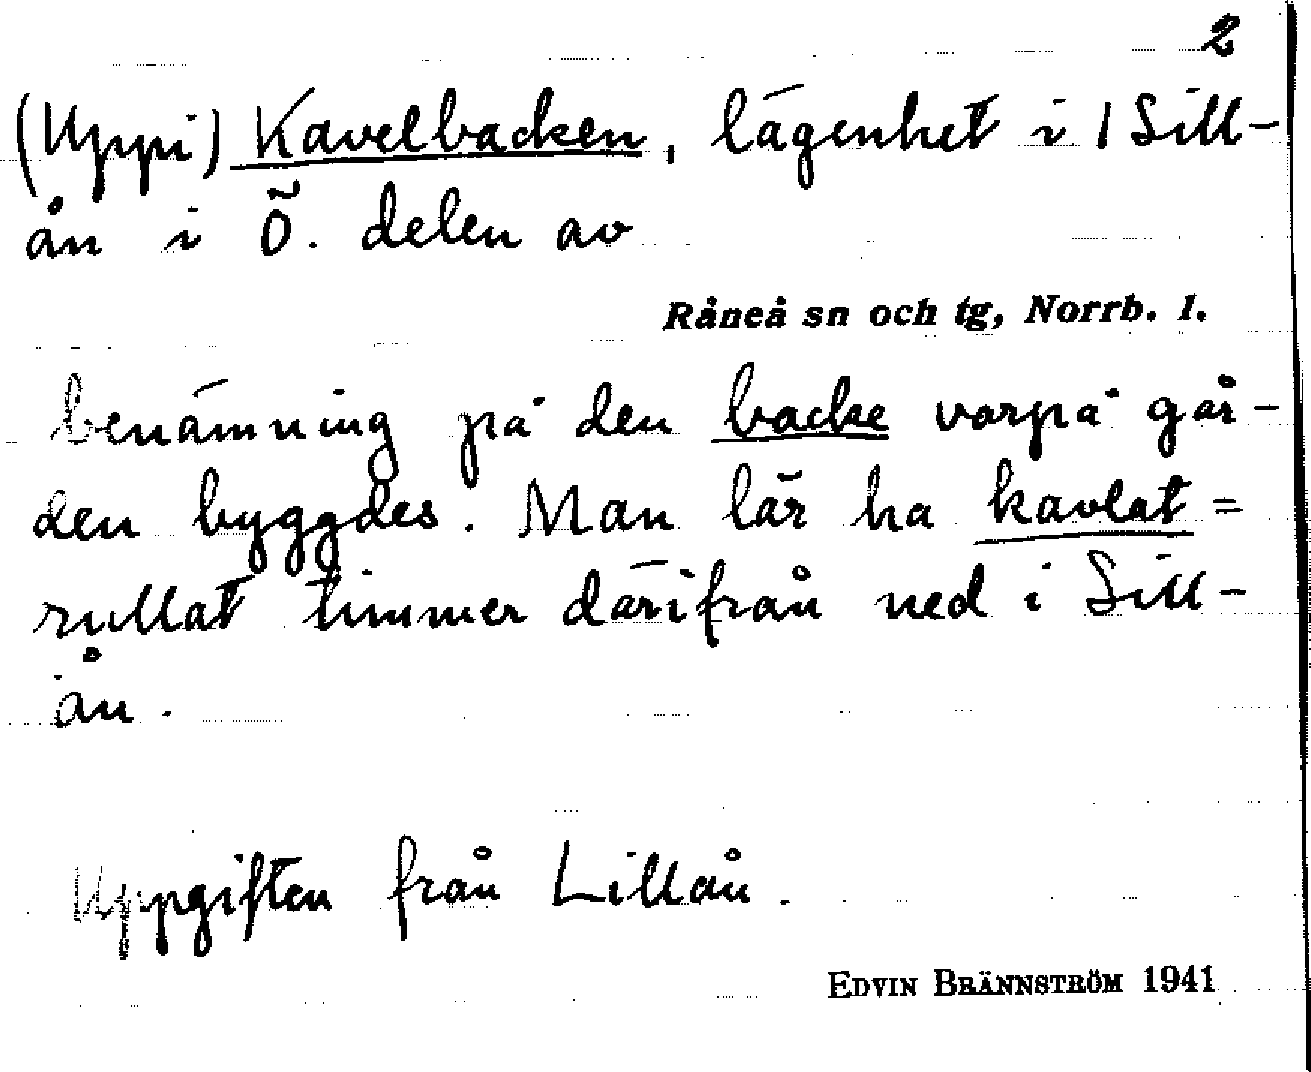 2
(Uppi) Kavelbacken, lägenhet i 1 Sill-
ån i Ö. delen av
Råneå sn och tg, Norrb. l.
benämning på den backe varpå går-
den byggdes. Man lär ha kavlat =
rullat timmer därifrån ned i Sill-
ån.
Uppgiften från Lillån.
EDVIN BRÄNNSTRÖM 1941